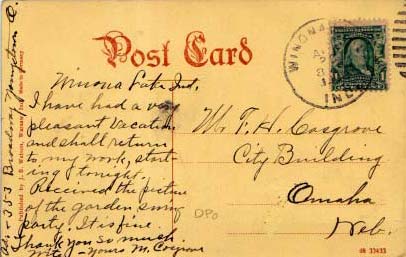 Post Card
WINONA
IND.
Winona Lake Ind.
I have had a very
pleasant vacation
and shall return
to my work, start-
ing tonight.
Received the picture
of the garden swing
party. It is fine.
Thank you so much
Yours M. Cosgrove
Mr. F. H. Cosgrove
City Building
Omaha
Neb.
DPO
353 Broadway, Youngstown O.
Published by J. S. Watson, Warsaw, Ind. Made in Germany